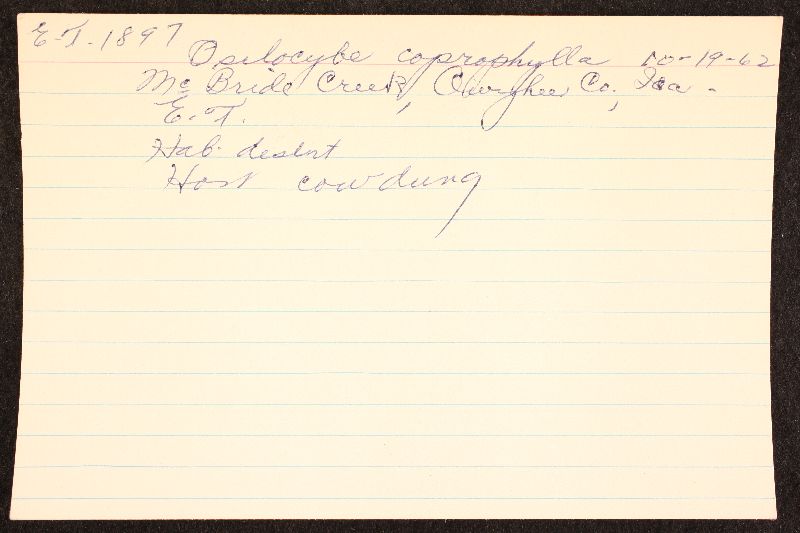 E.T. 1897
Psilocybe coprophylla 10-19-62
Mc Bride Creek, Owyhee Co., Ida.
E.T.
Hab. desert
Host cow dung